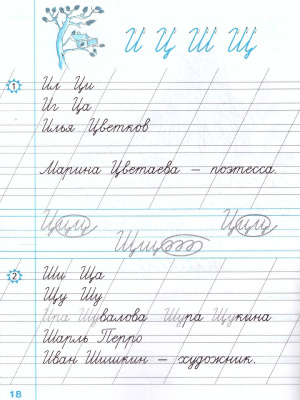 И Ц Ш Щ
1
Ил Ци
Иг Ца
Илья Цветков
Марина Цветаева – поэтесса.
2
Ши Ща
Щу Шу
Шувалова Шура Щукина
Шарль Перро
Иван Шишкин – художник.
18